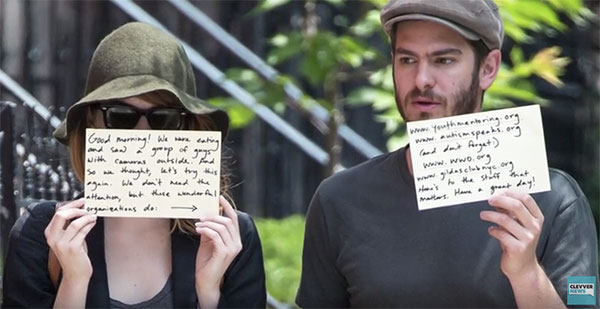 Good morning! We were eating
and saw a group of guys
with cameras outside. And
so we thought, let's try this
again. We don't need the
attention, but these wonderful
organizations do: →
www.youthmentoring.org
www.autismspeaks.org
(and don't forget)
www.wwo.org
www.gildasclubnyc.org
Here's to the stuff that
matters. Have a great day!
CLEVVER
NEWS